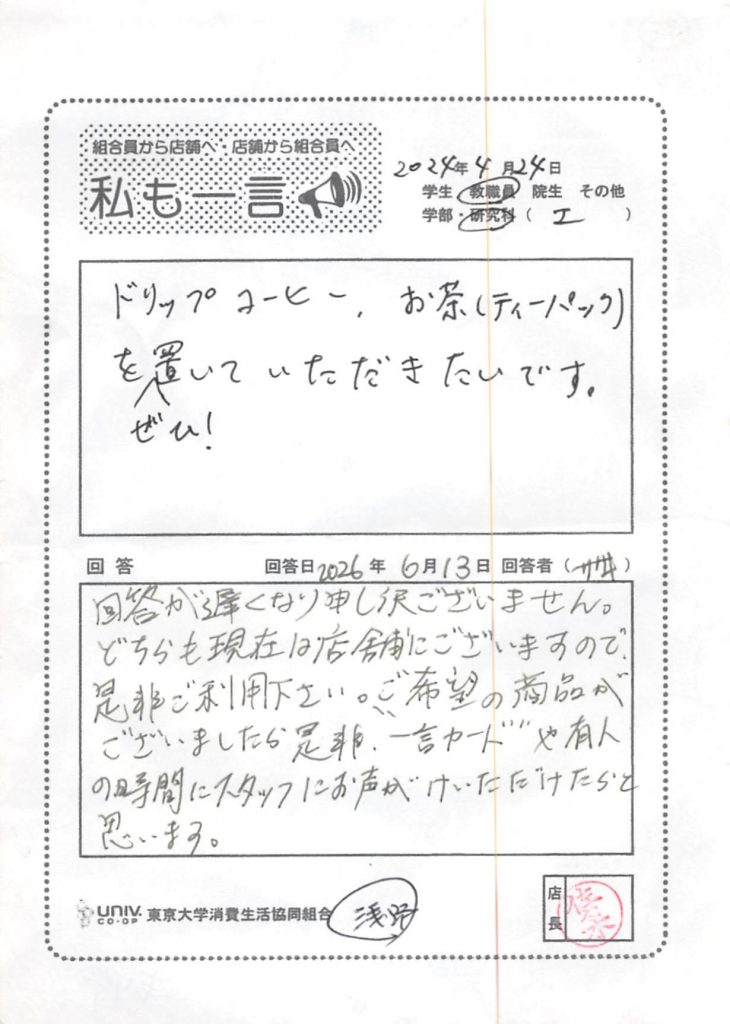 組合員から店舗へ・店舗から組合員へ
私も一言
2024年4月24日
学生 教職員 院生 その他
学部・研究科（ 工 ）
ドリップコーヒー、お茶(ティーパック)
を置いていただきたいです。
ぜひ!
回答 回答日2026年6月13日 回答者（ササ井）
回答が遅くなり申し訳ございません。
どちらも現在は店舗にございますので、
是非ご利用下さい。ご希望の商品が
ございましたら是非、“一言カード”や有人
の時間にスタッフにお声がけいただけたらと
思います。
UNIV. CO-OP 東京大学消費生活協同組合 浅野
店長